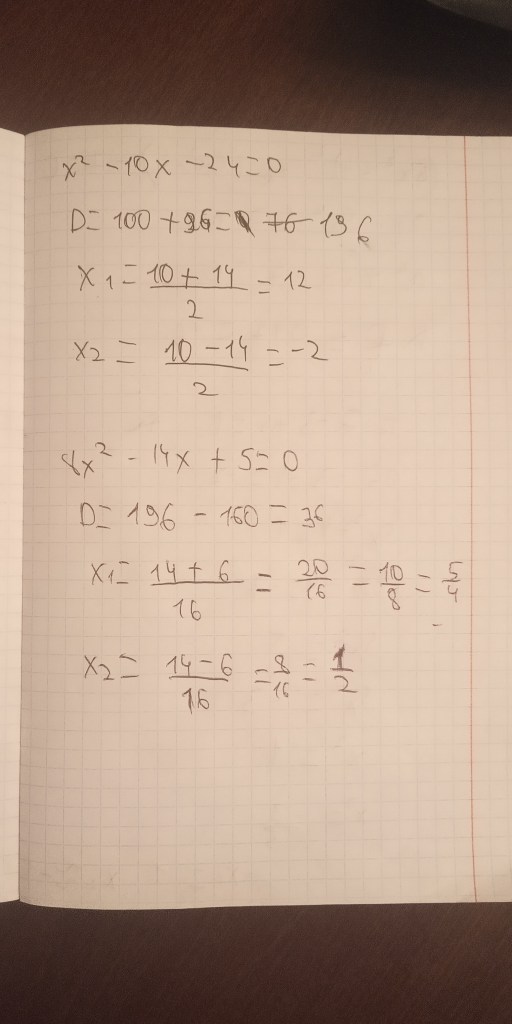 x² - 10x - 24 = 0
D = 100 + 96 = 196
x₁ = (10 + 14)/2 = 12
x₂ = (10 - 14)/2 = -2
8x² - 14x + 5 = 0
D = 196 - 160 = 36
x₁ = (14 + 6)/16 = 20/16 = 10/8 = 5/4
x₂ = (14 - 6)/16 = 8/16 = 1/2